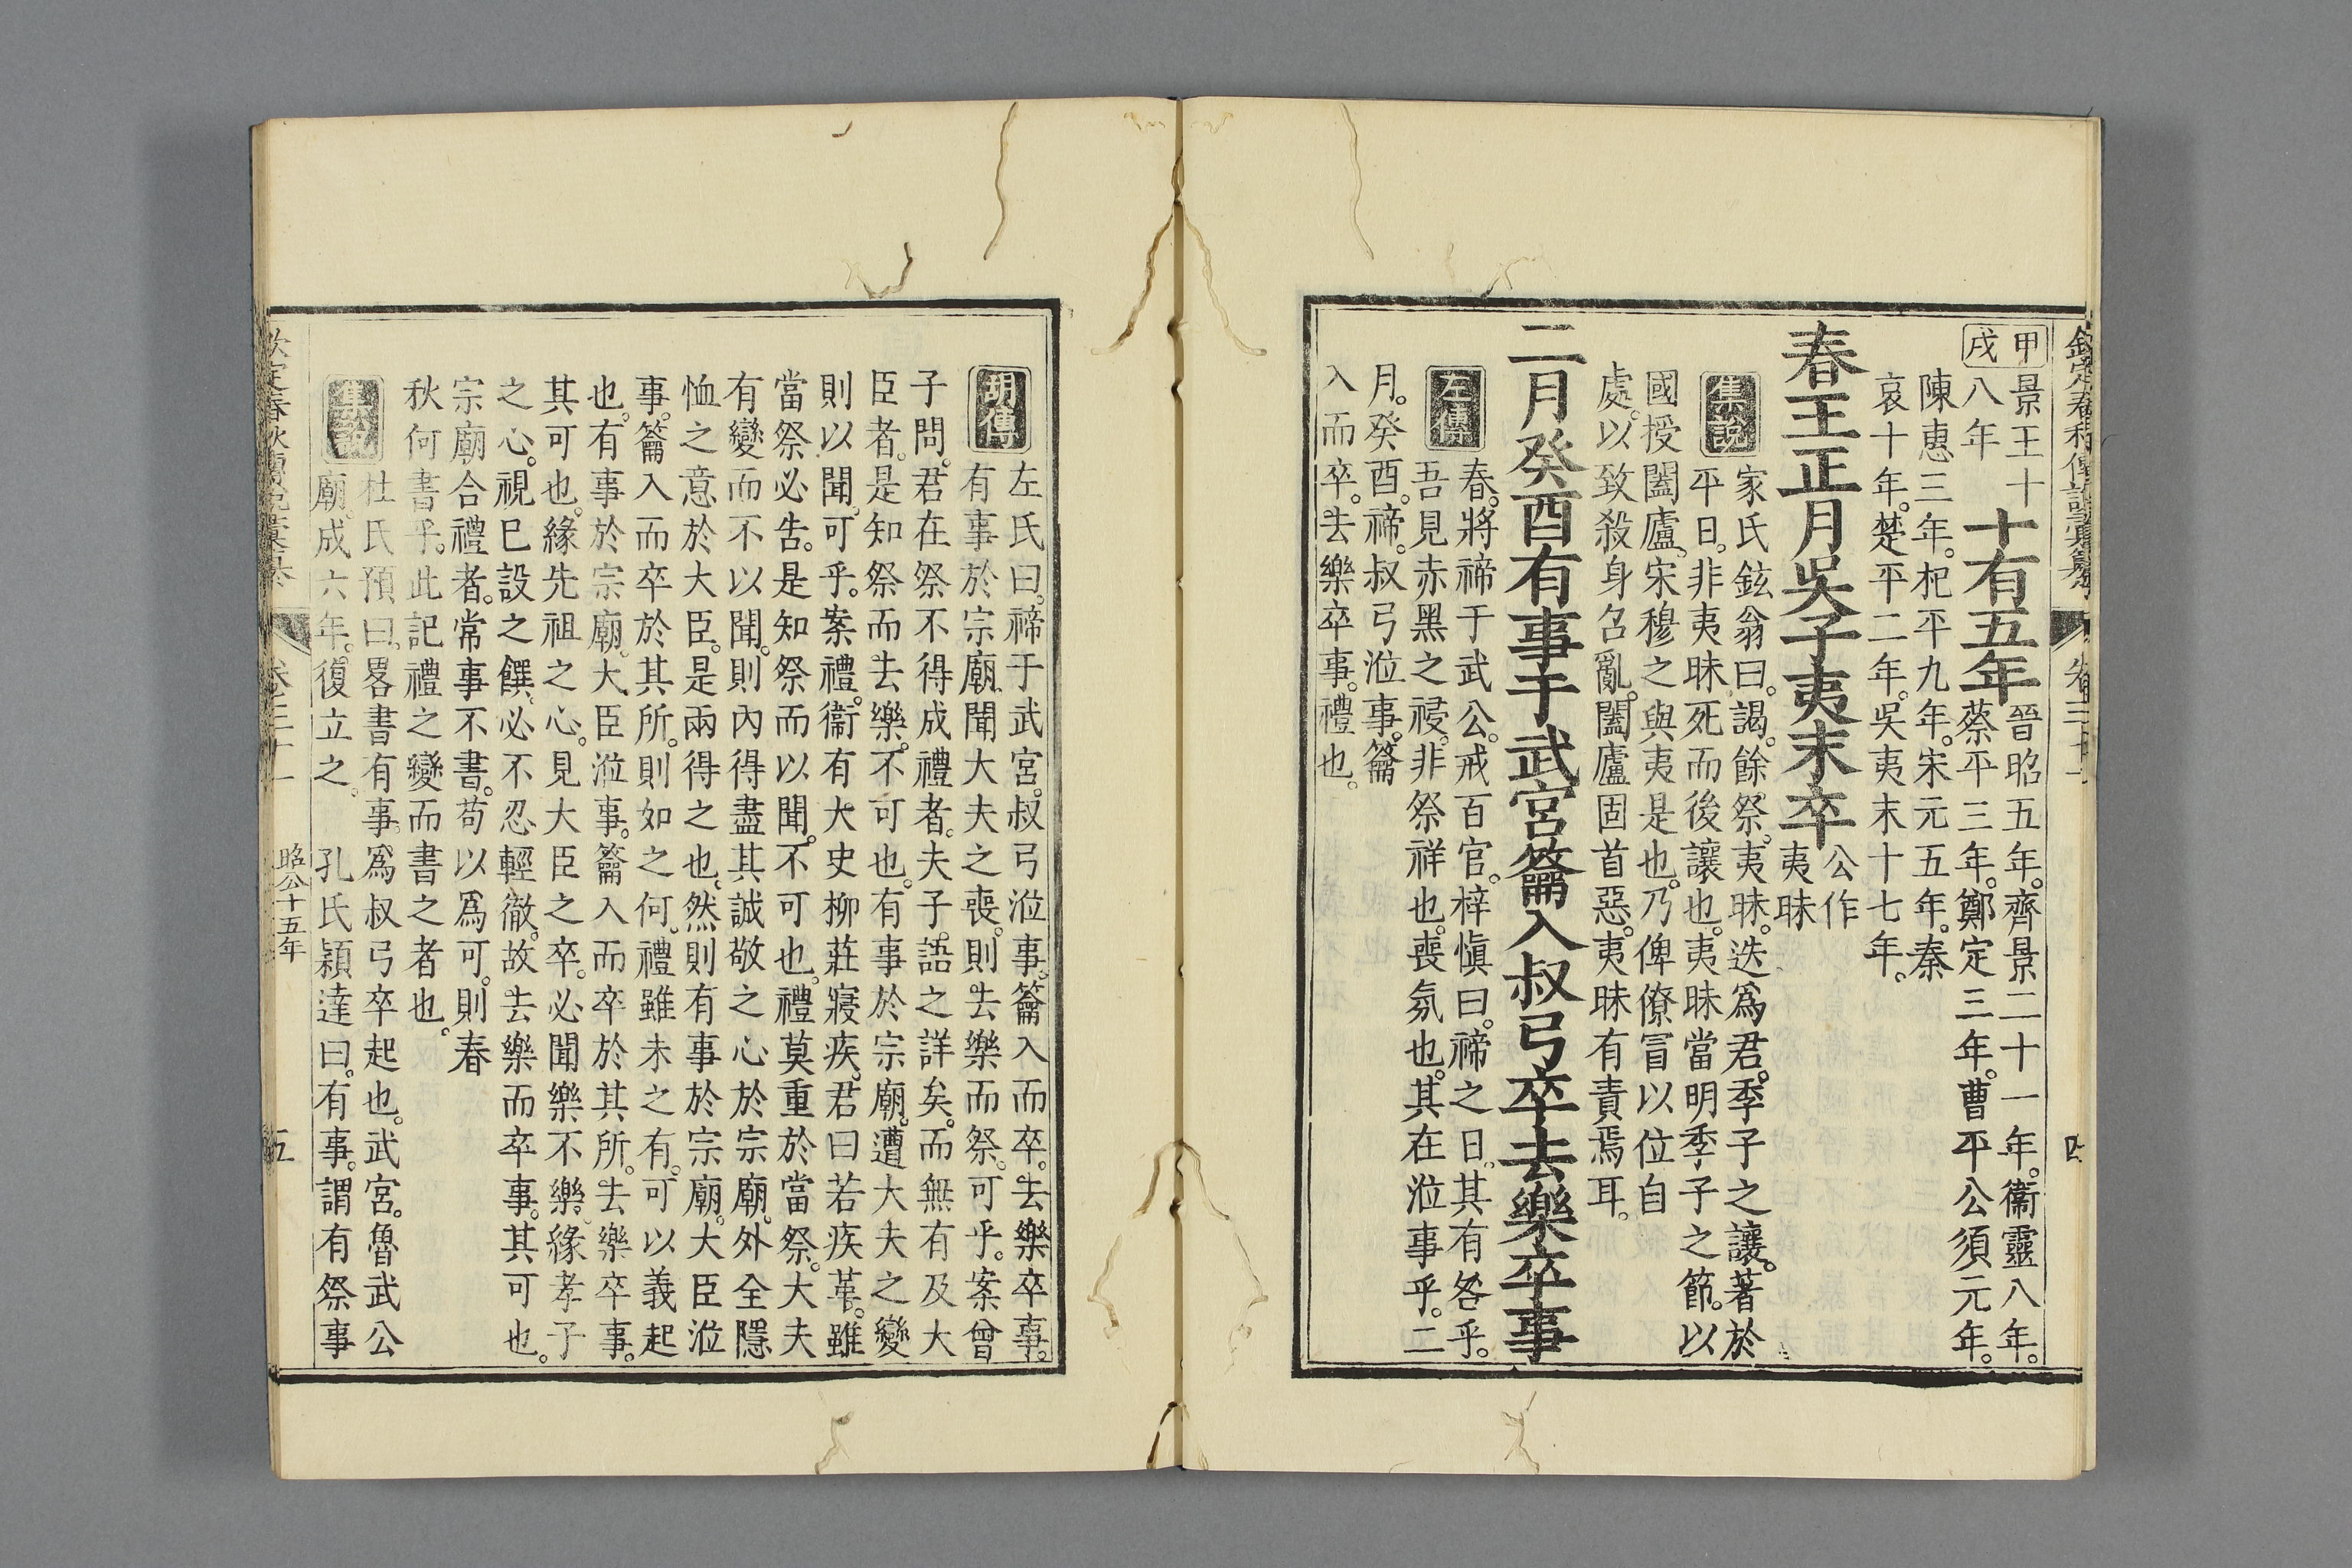 欽定春秋傳說彙纂
卷三十一
四
甲戌
景王十八年
十有五年
晉昭五年。齊景二十一年。衞靈八年。
蔡平三年。鄭定三年。曹平公須元年。
陳惠三年。杞平九年。宋元五年。秦
哀十年。楚平二年。吳夷末十七年。
春王正月吳子夷末卒
公作
夷昧
集說
家氏鉉翁曰。謁。餘祭。夷昧。迭爲君。季子之讓。著於
平日。非夷昧死而後讓也。夷昧當明季子之節。以
國授闔廬。宋穆之與夷是也。乃俾僚冒以位自
處。以致殺身召亂。闔廬固首惡。夷昧有責焉耳。
二月癸酉有事于武宮籥入叔弓卒去樂卒事
左傳
春。將禘于武公。戒百官。梓愼曰。禘之日。其有咎乎。
吾見赤黑之祲。非祭祥也。喪氛也。其在涖事乎。二
月。癸酉。禘。叔弓涖事。籥
入而卒。去樂卒事。禮也。
胡傳
左氏曰。禘于武宮。叔弓涖事。籥入而卒。去樂卒事。
有事於宗廟。聞大夫之喪。則去樂而祭。可乎。案曾
子問。君在祭不得成禮者。夫子。語之詳矣。而無有及大
臣者。是知祭而去樂。不可也。有事於宗廟。遭大夫之變
則以聞。可乎。案禮。衞有大史柳莊寢疾。君曰若疾革。雖
當祭必告。是知祭而以聞。不可也。禮莫重於當祭。大夫
有變而不以聞。則內得盡其誠敬之心於宗廟。外全隱
恤之意於大臣。是兩得之也。然則有事於宗廟。大臣涖
事。籥入而卒於其所。則如之何。禮雖未之有。可以義起
也。有事於宗廟。大臣涖事。籥入而卒於其所。去樂卒事。
其可也。緣先祖之心。見大臣之卒。必聞樂不樂。緣孝子
之心。視已設之饌。必不忍輕徹。故去樂而卒事。其可也。
宗廟合禮者。常事不書。苟以爲可。則春
秋何書乎。此記禮之變而書之者也。
集說
杜氏預曰。畧書有事。爲叔弓卒起也。武宮。魯武公
廟。成六年。復立之。 孔氏穎達曰。有事。謂有祭事
欽定春秋傳說彙纂
卷三十一
昭公十五年
五